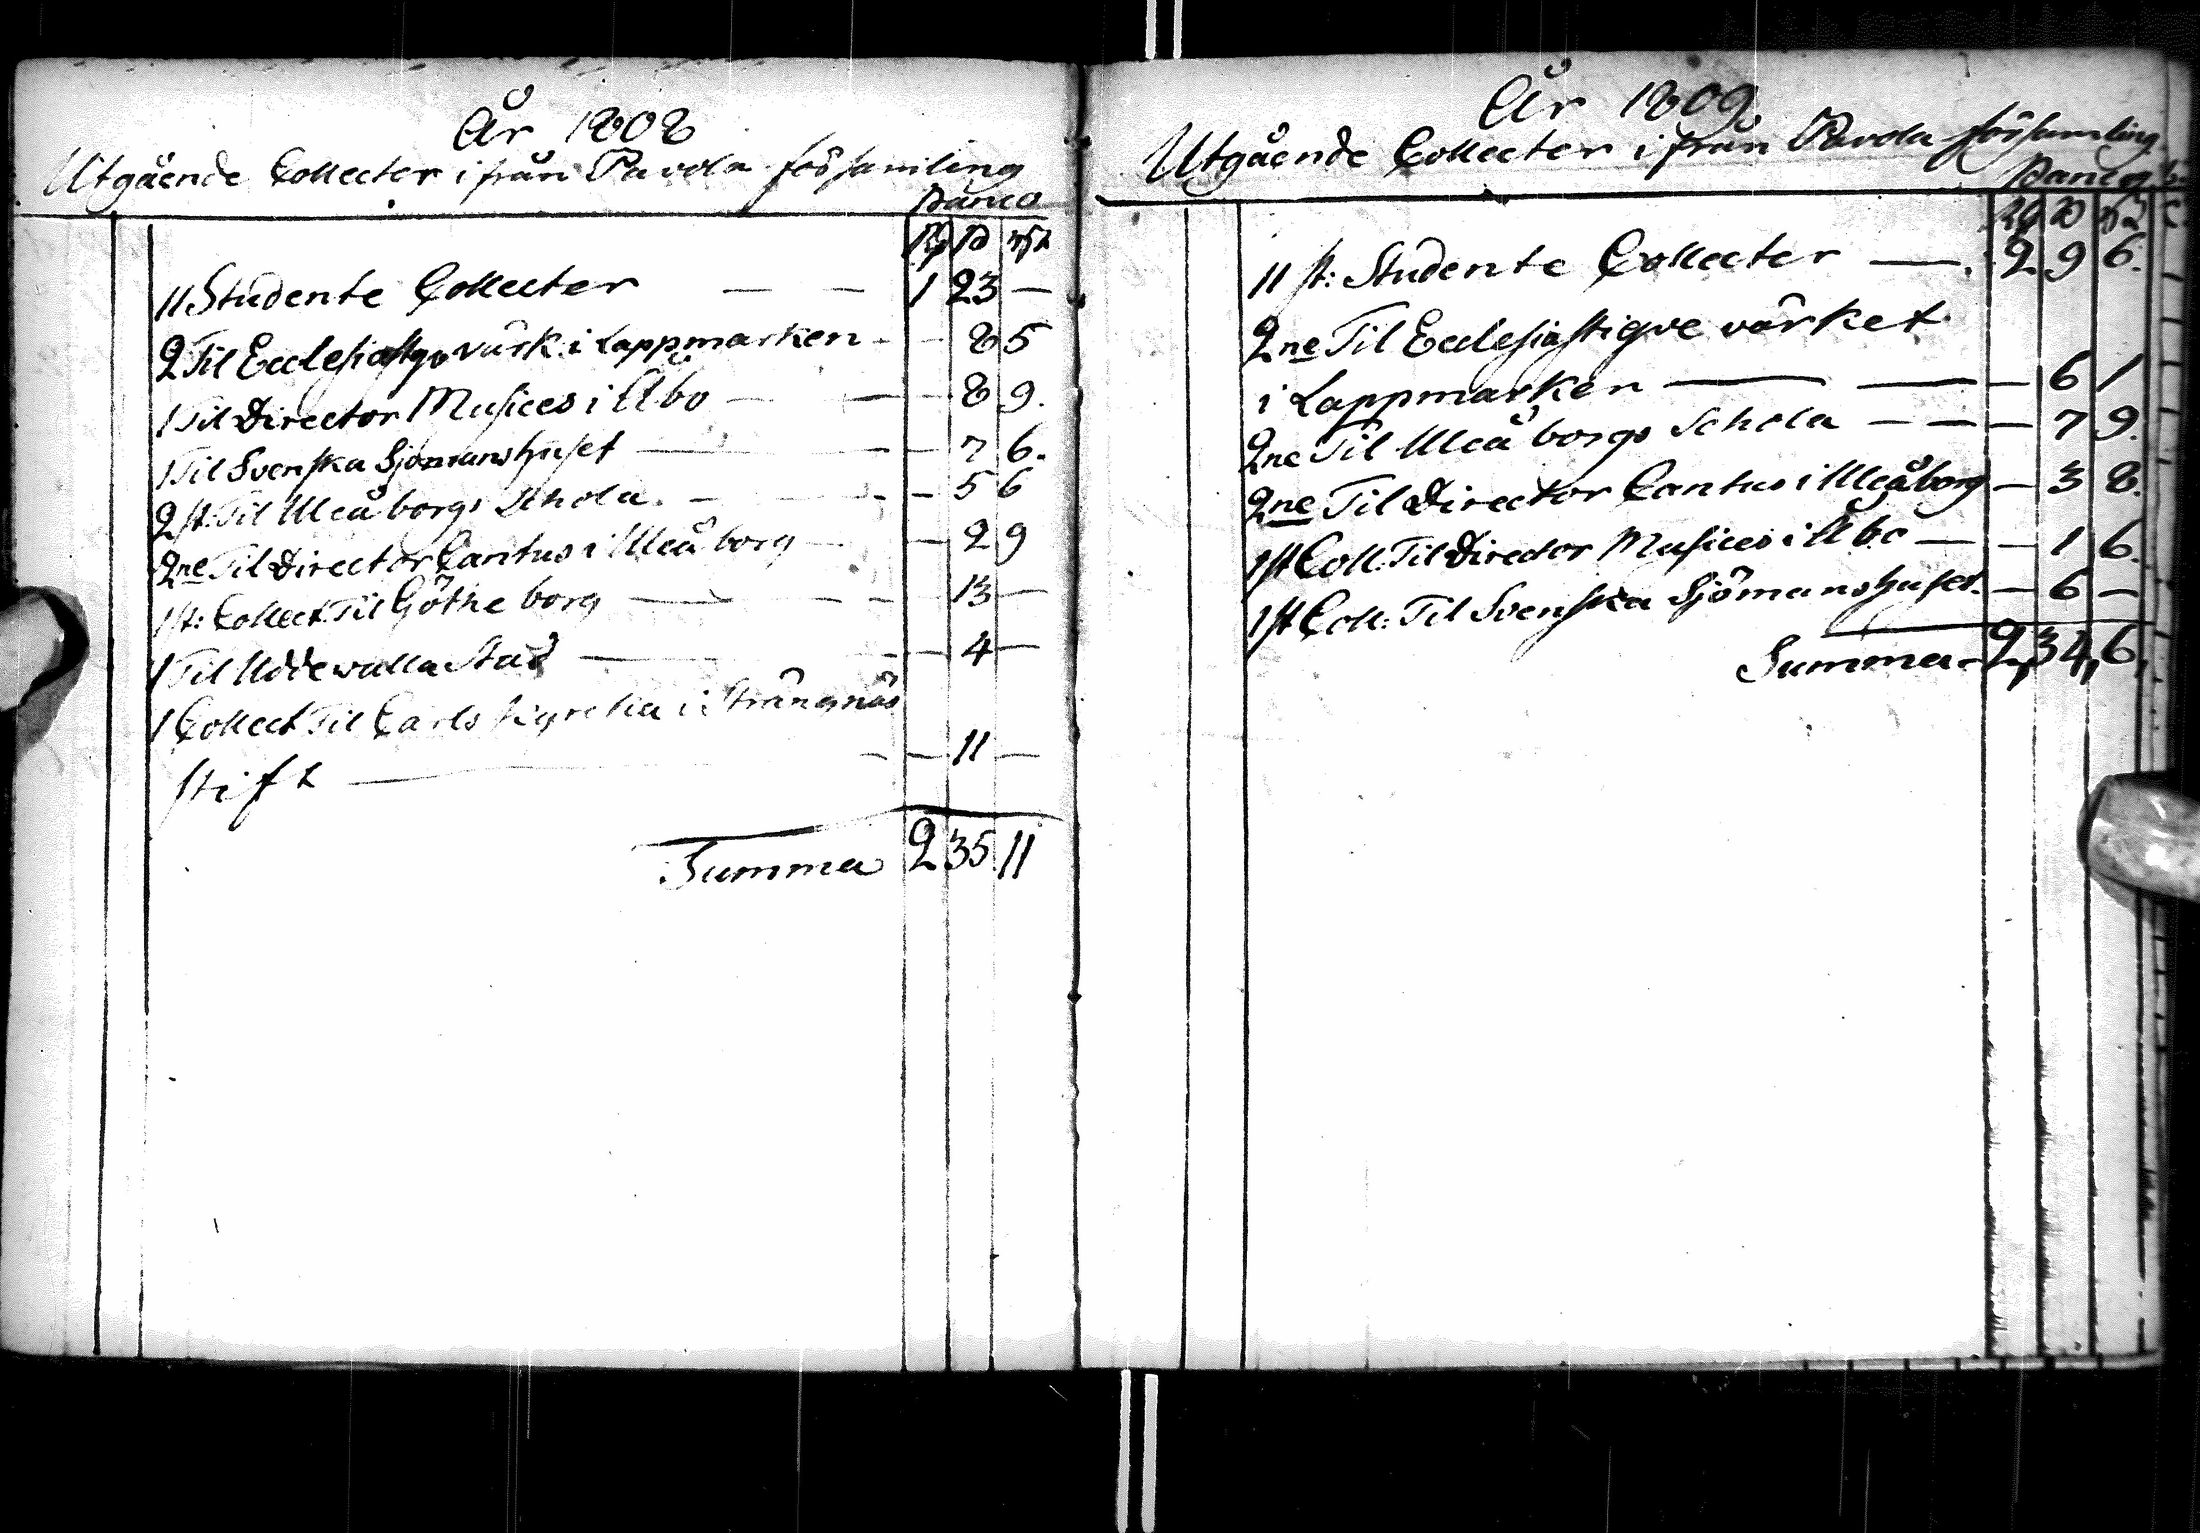 År 1808
Utgående Collecter ifrån Pavola församling
Banco
Rd ß rst
11 Studente Collecter — — 1 23 —
2 Til Ecclesiastq värk i Lappmarken - - 8 5
1 Til Director Musices i Åbo — — - 8 9.
1 Til Svenska Sjömanshuset — - - 7 6.
2 st: Til Uleåborgs Schola. — - - 5 6
2ne Til Director Cantus i Uleåborg — - 2 9
1 st: Collect. Til Götheborg — - - - 13 —
1 Til Uddevalla Stad — - - 4 —
1 Collect Til Carls kyrcka i Strängnäs
stift — - - 11 —
Summa 2 35 11
År 1809
Utgående Collecter ifrån Pavola församling
Banco
Rd ß rst
11 st: Studente Collecter —. 2 9 6.
2ne Til Ecclesiastique värket
i Lappmarken — — — 6 1
2ne Til Uleåborgs Schola — — — 7 9.
2ne Til Director Cantus i Uleåborg — 3 8.
1 st Coll: Til Director Musices i Åbo — — 1 6.
1 st Coll: Til Svenska Sjömanshuset. — 6 —
Summa - 2, 34, 6,